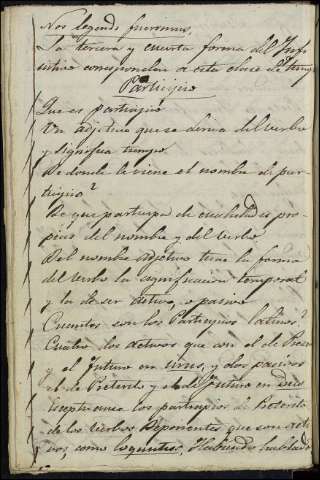 Nos legendi fueramus,
La tercera y cuarta forma del Infi
nitivo corresponden a esta clase de tiemp
Participio
Que es participio
Un adjetivo que se deriva del verbo
y significa tiempo.
De donde le viene el nombre de par-
ticipio?
De que participa de cualidades pro-
pias del nombre y del verbo
Del nombre adjetivo tiene la forma
del verbo la significacion temporal
y la de ser activo, o pasivo
Cuantos son los Participios latinos?
Cuatro dos activos que son el de Prese
y el Futuro en urus, y dos pasivos
el de Preterito y el de Futuro en dus
los participios de Preterito
de los verbos Deponentes que son acti
vos, como loquutus, Habiendo hablado